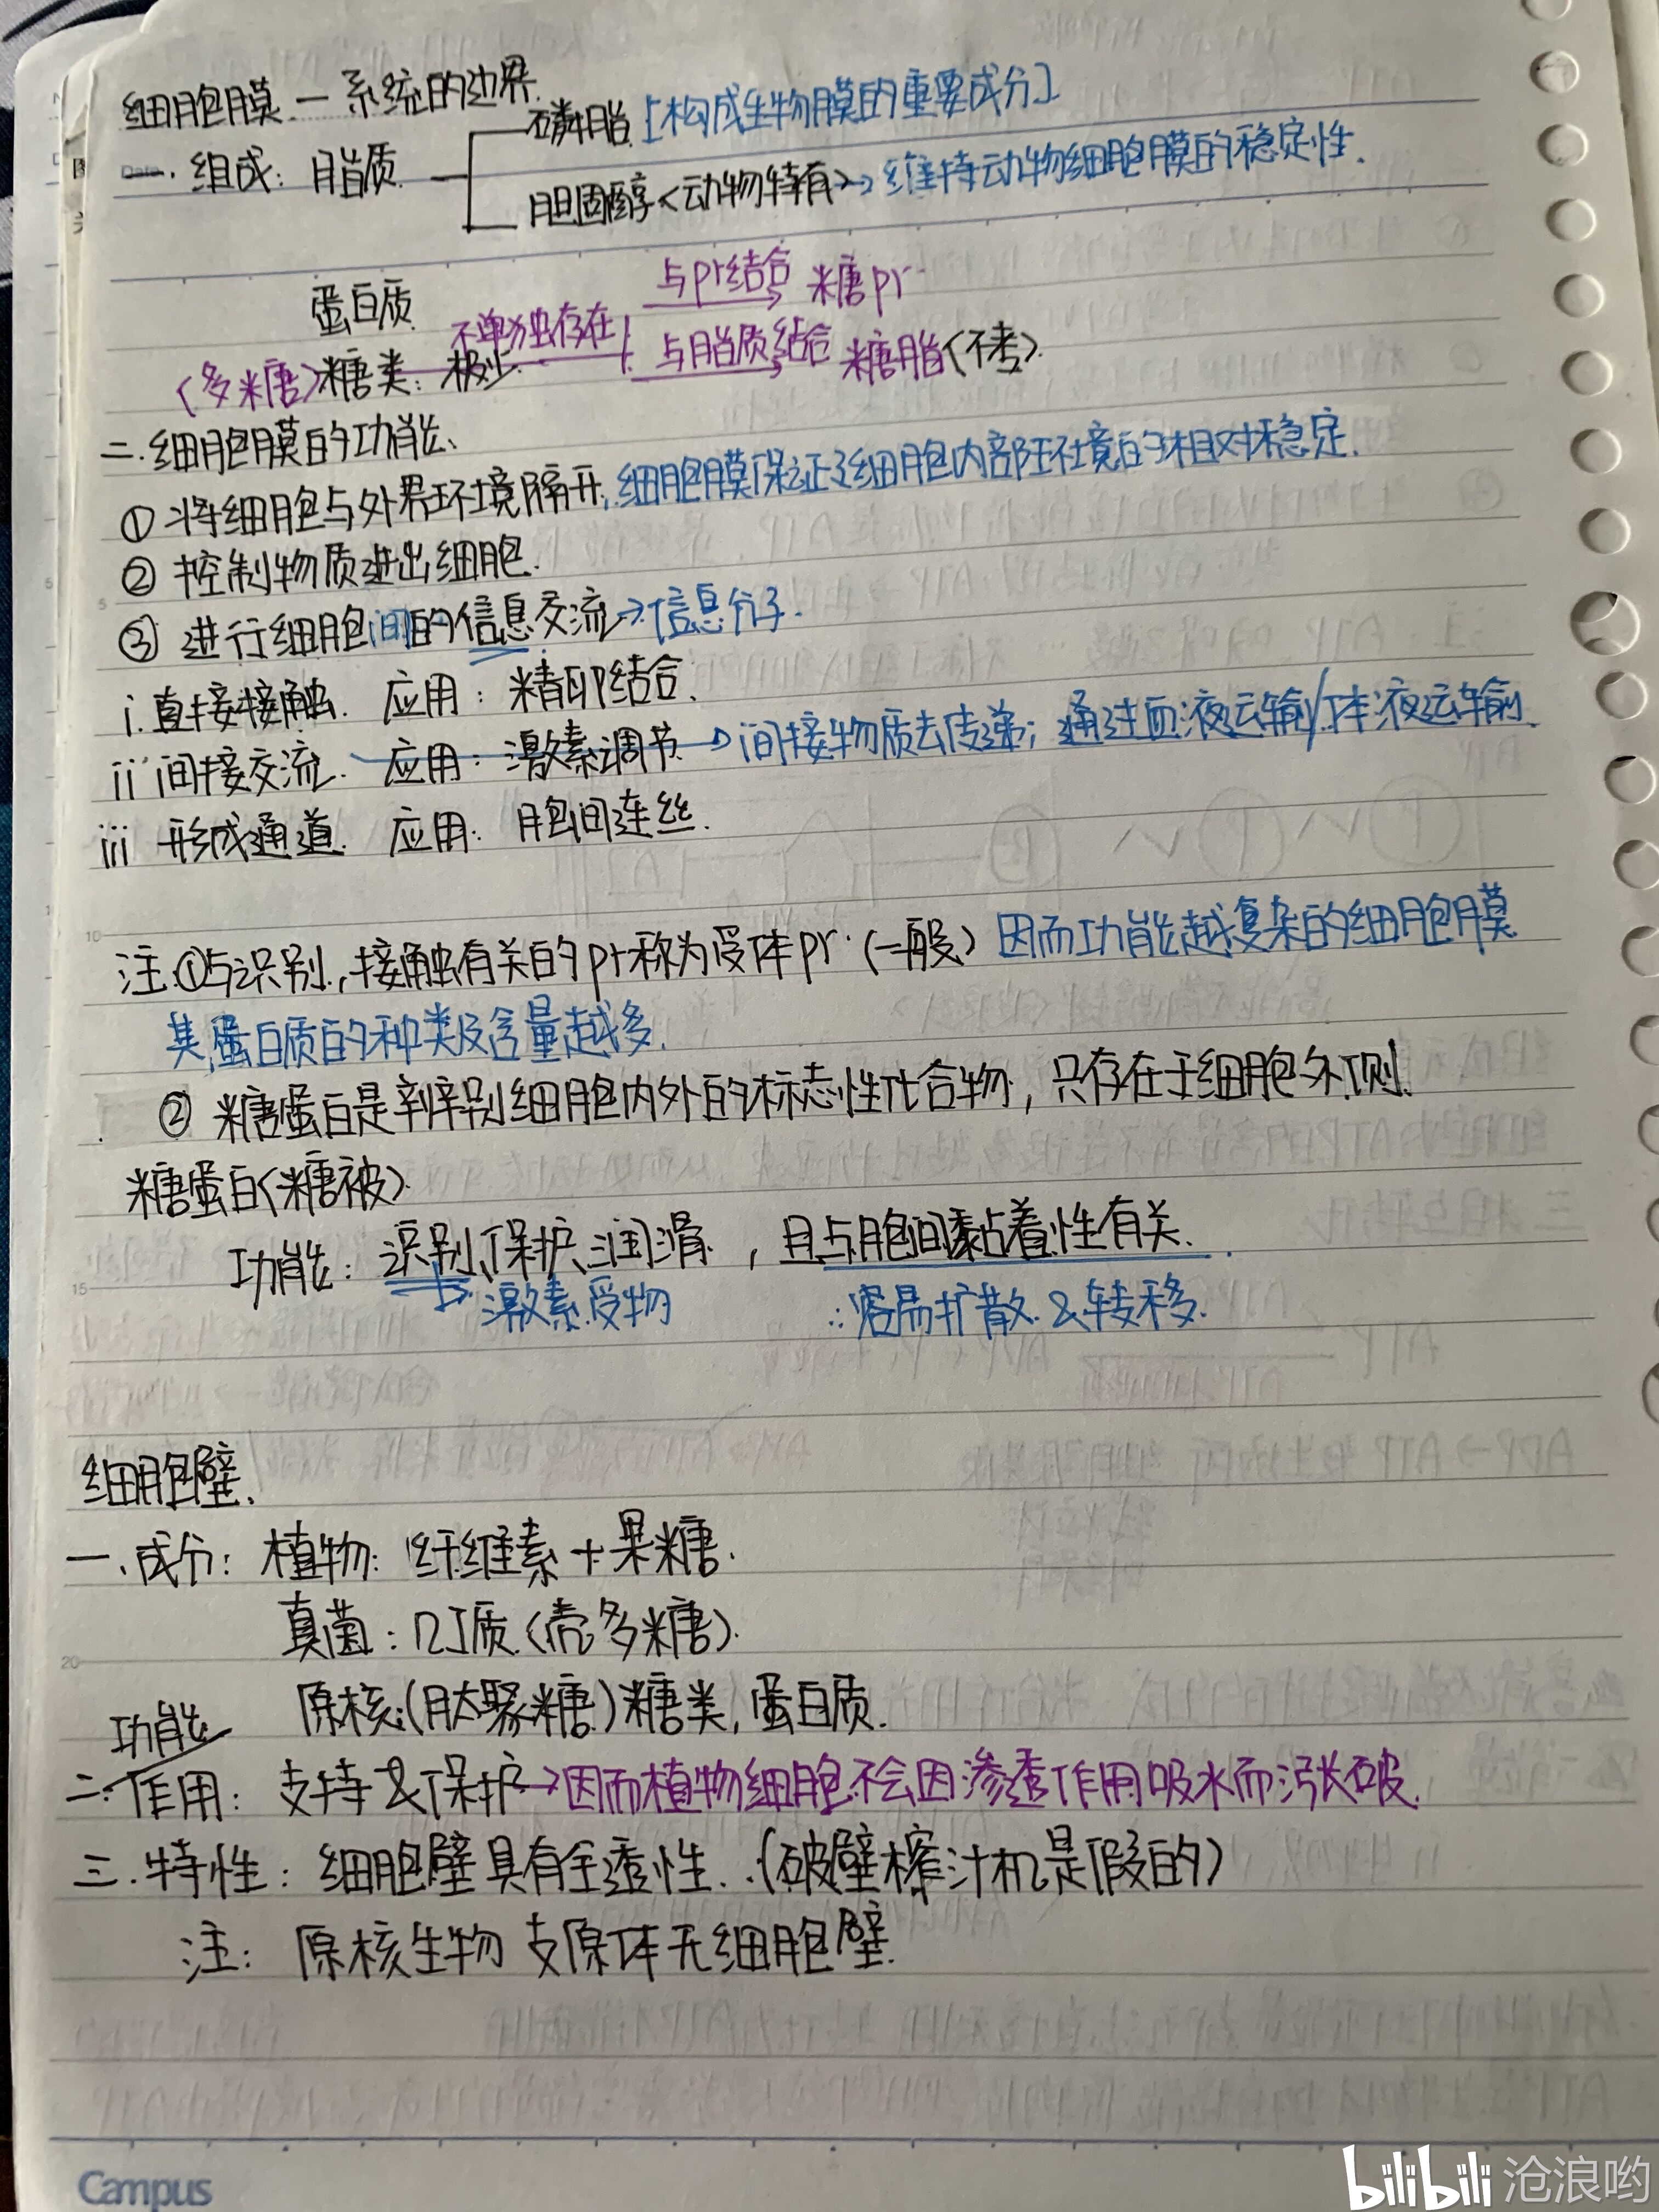 细胞膜 — 系统的边界.
一. 组成: 脂质 磷脂 [构成生物膜的重要成分]
胆固醇<动物特有>→维持动物细胞膜的稳定性.
蛋白质
(多糖) 糖类: 极少 不单独存在 与pr结合 糖pr
与脂质结合 糖脂(不考).
二. 细胞膜的功能.
① 将细胞与外界环境隔开, 细胞膜保证了细胞内部环境的相对稳定.
② 控制物质进出细胞.
③ 进行细胞间的信息交流→信息分子.
i. 直接接触. 应用: 精卵结合.
ii 间接交流. 应用: 激素调节→间接物质去传递; 通过血液运输/体液运输.
iii 形成通道. 应用: 胞间连丝.
注.①与识别, 接触有关的pr称为受体pr.(一般) 因而功能越复杂的细胞膜
其蛋白质的种类及含量越多.
② 糖蛋白是辨别细胞内外的标志性化合物, 只存在于细胞外侧.
糖蛋白<糖被>.
功能: 识别、保护、润滑, 且与胞间黏着性有关.
→激素.受物 ∴容易扩散&转移.
细胞壁.
一. 成分: 植物: 纤维素+果糖.
真菌: 几丁质.(壳多糖).
原核:(肽聚糖)糖类, 蛋白质.
功能
二. 作用: 支持&保护→因而植物细胞不会因渗透作用吸水而涨破.
三. 特性: 细胞壁具有全透性. (破壁榨汁机是假的)
注: 原核生物 支原体无细胞壁.
Campus
bilibili 沧浪哟